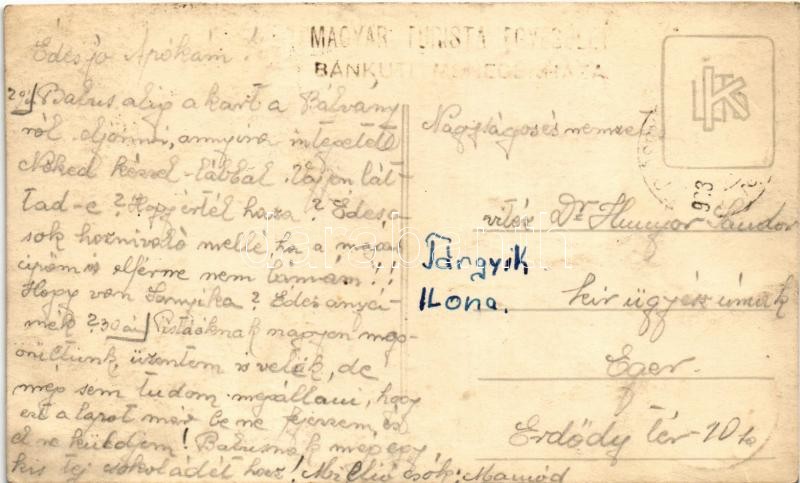 MAGYAR TURISTA EGYESÜLET
BÁNKUTI MENEDÉKHÁZA
Édes jó Apókám!
Babus alig akart a Bálvány
ról eljönni, annyira integetett
Neked kézzel-lábbal. Vajon lát-
tad-e? Hogy értél haza? Édes
sok hoznivaló mellé, ha a
cipőm is elférne nem bánám!!
Hogy van Sanyika? Édesanyi-
mék?
nagyon meg-
örültünk, üzentem is velük, de
még sem tudom megállani, hogy
ezt a lapot már be ne fejezzem, és
el ne küldjem! Babusnak még egy
kis tej csokoládét hozz! Millió csók: Mamód
Nagyságos és nemzetes
vitéz Dr Hunyor Sándor
kir ügyész úrnak
Eger.
Erdődy tér 10
Tárgyik
Ilona.
LK
darabanth